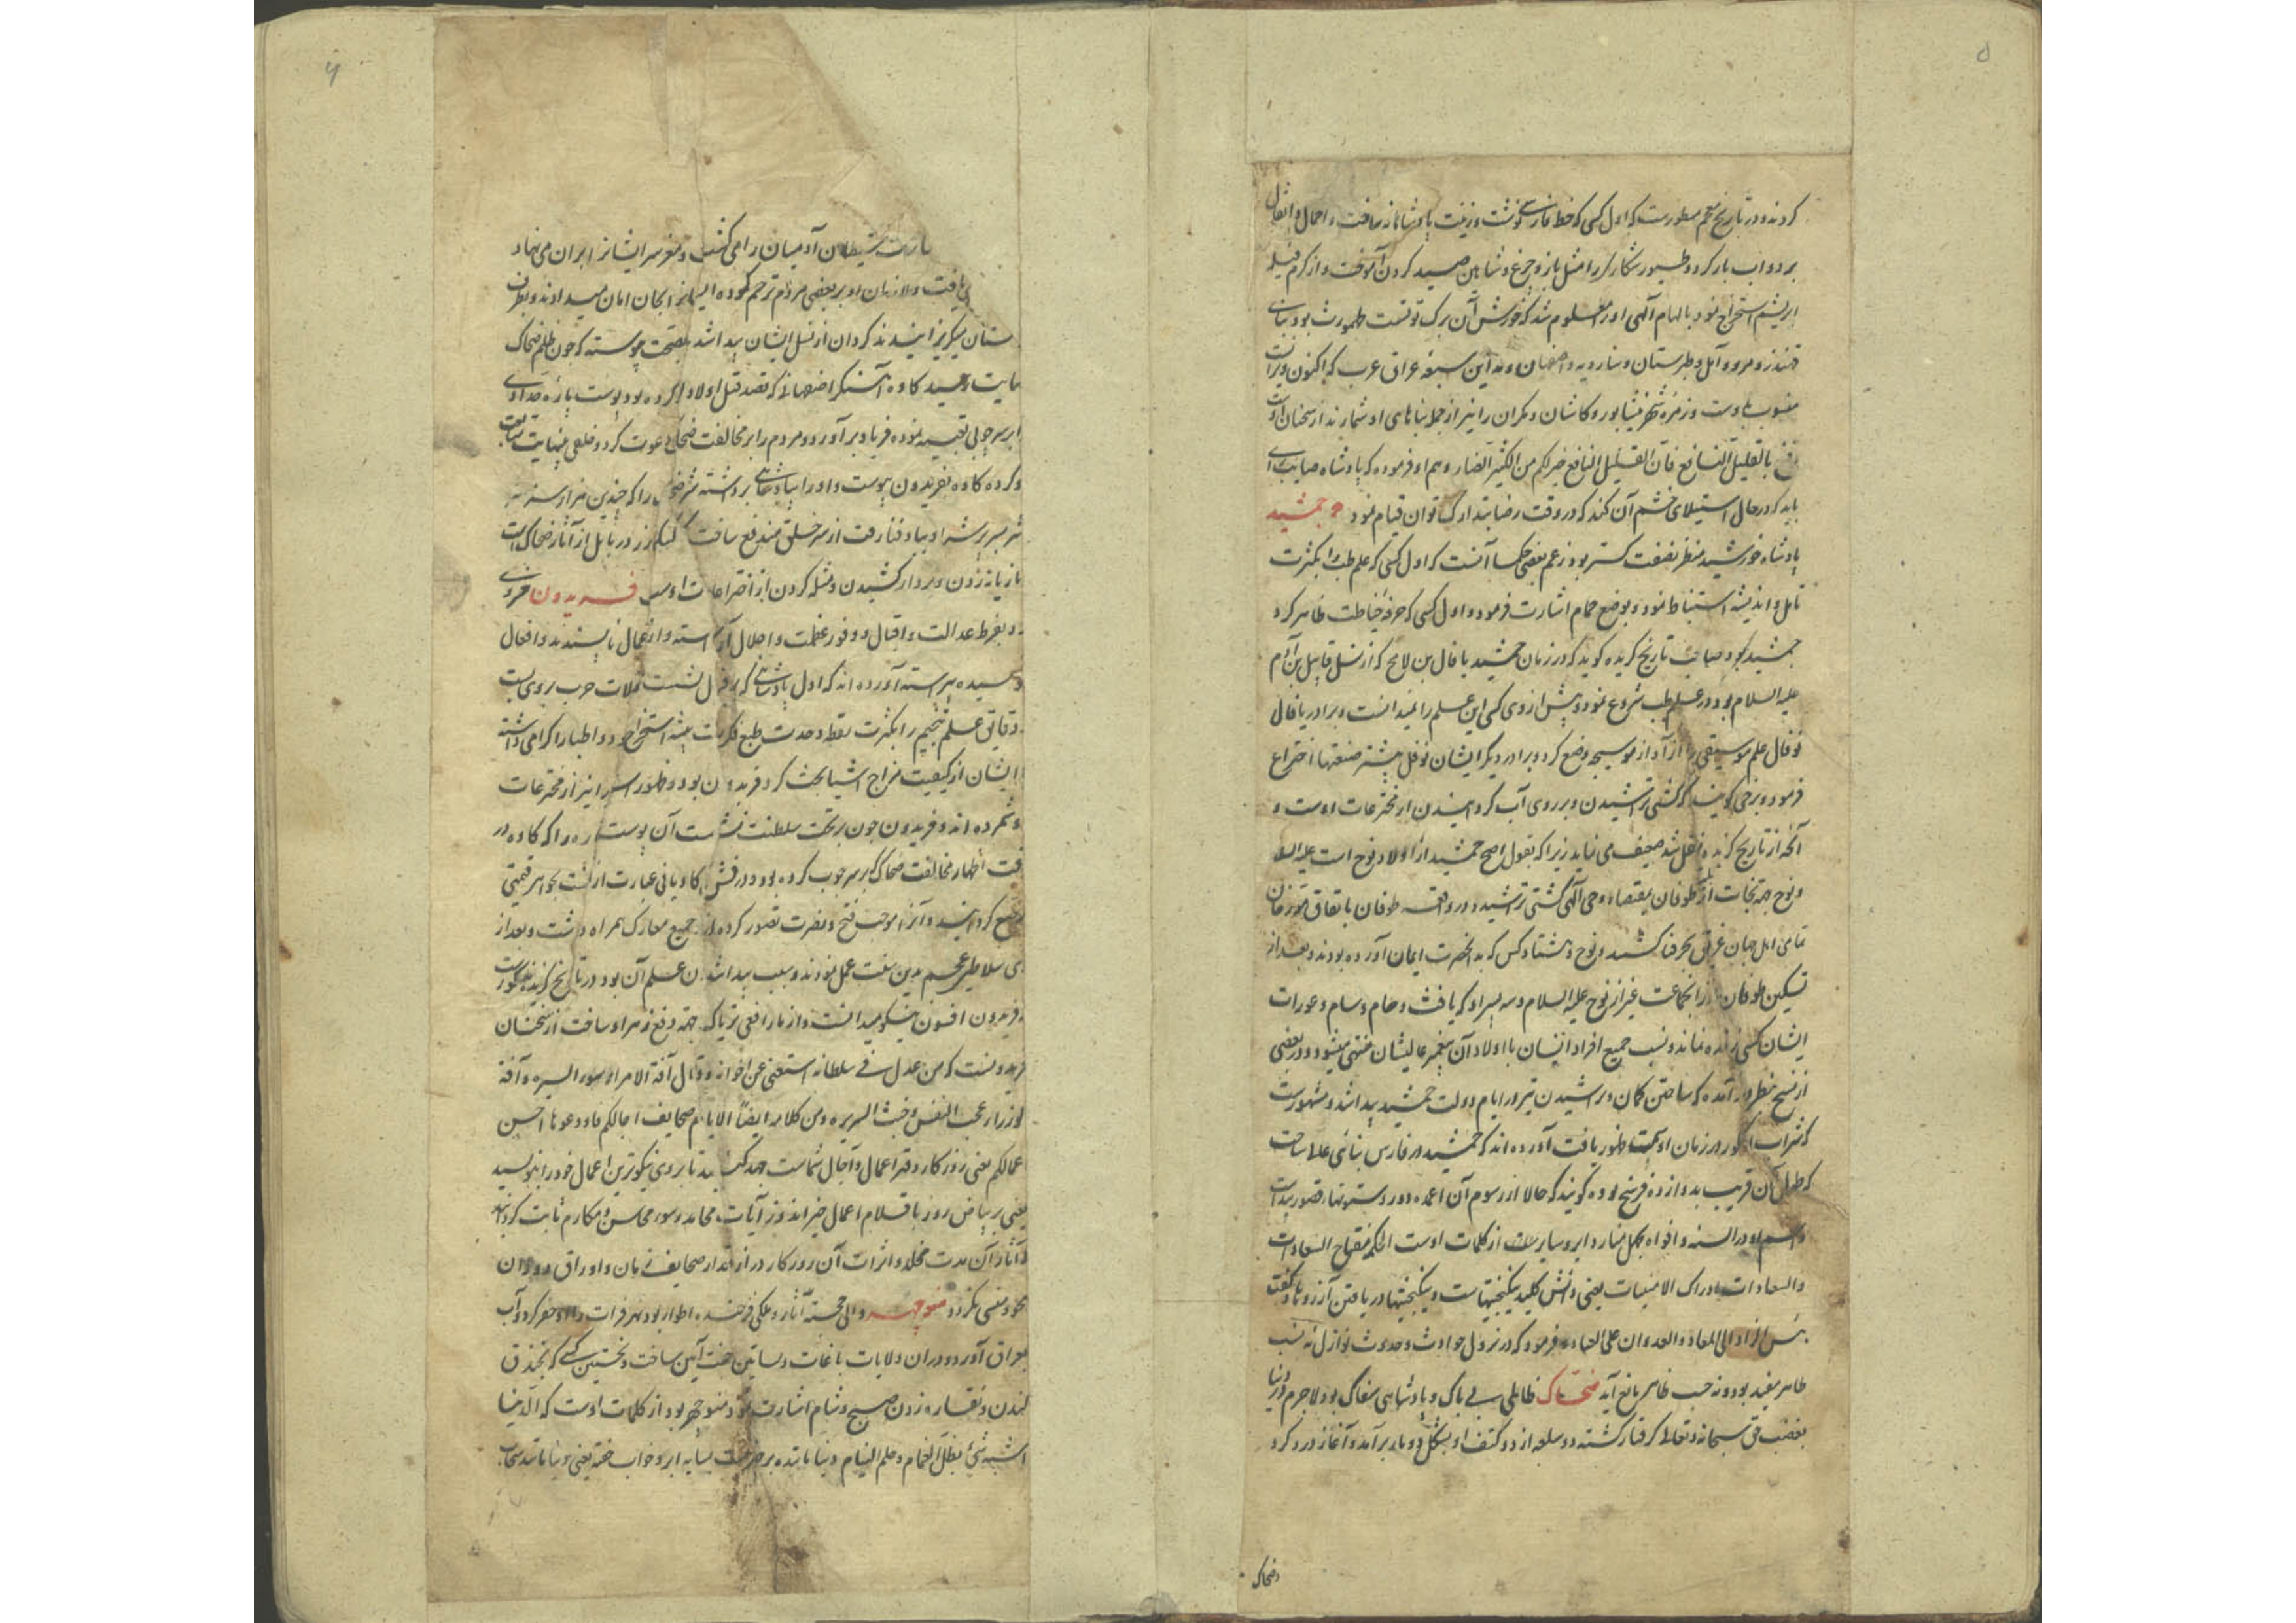 کردند و در تاریخ معجم مسطورست که اول کسی که خط فارسی نوشت و زینت پادشاهانه ساخت و احمال و اثقال
بر دواب بار کرد و طیور شکاری را مثل باز و چرغ و شاهین صید کردن آموخت و از کرم فیله
ابریشم استخراج نمود بالهام الهی او را معلوم شد که خورش آن برک توتست طهمورث بود بنای
قندز و مرو و آمل و طبرستان و سارویه و اصفهان و مداین سبعه عراق عرب که اکنون ویرانست
منسوب باوست و زمره شهر نیشابور و کاشان و مکران را نیز از جمله بناهای او شمارند از سخنان اوست
بالقلیل النافع فان القلیل النافع خیر لکم من الکثیر الضار و هم او فرموده که پادشاه صایب رای
باید که در حال استیلای خشم آن کند که در وقت رضا بتدارک توان قیام نمود جمشید
پادشاه خورشید منظر گستر بود زعم بعضی حکما آنست که اول کسی که علم طب را بکثرت
تامل و اندیشه استنباط نمود و بوضع حمام اشارت فرمود و اول کسی که حرفه خیاطت ظاهر کرد
جمشید بود صاحب تاریخ گزیده گوید که در زمان جمشید یافال بن لامح که از نسل قابیل بن آدم
علیه السلام بود در علم طب شروع نمود و پیش از وی کسی این علم را نمیدانست و برادر یافال
نوفال علم موسیقی را از آواز موسیجه وضع کرد و برادر دیگر ایشان نوفل بیشتر صنعتها اختراع
فرمود و برخی گویند که کشتی تراشیدن و بر روی آب گردانیدن از مخترعات اوست و
آنچه از تاریخ گزیده نقل شد ضعیف می نماید زیرا که بقول اصح جمشید از اولاد نوح است علیه السلام
و نوح جهة نجات از طوفان بمقتضاء وحی الهی کشتی تراشید و در واقعه طوفان باتفاق مورخان
تمامی اهل جهان غریق بحر فنا گشتند و نوح و هشتاد کس که بد انحضرت ایمان آورده بودند و بعد از
تسکین طوفان از آنجماعت غیر از نوح علیه السلام و سه پسر او که یافث و حام و سام و عورات
ایشان کسی زنده نماند و نسب جمیع افراد انسان با اولاد آن پیغمبر عالیشان منتهی میشود و در بعضی
از نسخ بنظر در آمده که ساختن کمان و تراشیدن تیر در ایام دولت جمشید پیدا شد و مشهورست
که شراب انگور در زمان او سمت ظهور یافت آورده اند که جمشید در فارس بنائی عالی ساخت
که طول آن قریب بدوازده فرسخ بوده گویند که حالا از رسوم آن اعمده و دور و ستونها قصور پیداست
و اسم او در السنه و افواه بچهل منار دایر و سایرست از کلمات اوست الحکم مفتاح السعادات
والسعادات ادراک الامنیات یعنی دانش کلید نیکبختیهاست و نیکبختیها دریافتن آرزوها و گفت
بئس الزاد الی المعاد والعدوان علی العباد و فرمود که در نزول حوادث و حدوث نوازل نه نسب
ظاهر مفید بود و نه حسب ظاهر مانع آید ضحاک ظالمی بی باک و پادشاهی سفاک بود لاجرم در دنیا
بغضب حق سبحانه و تعالی گرفتار گشته دو سلعه از دو کتف او بشکل دو مار برآمد و آغاز درد کرد
ضحاک
شیطان آدمیان را می کشت و مغز سر ایشانرا بران می نهاد
می یافت و ملازمان او بر بعضی مردم ترحم نموده ایشانرا بجان امان میدادند و بطرف
ستان میگریزانیدند کردان از نسل ایشان پیدا شد بصحت پیوسته که چون ظلم ضحاک
رسید کاوه آهنگر اصفهانی که قصد قتل اولاد او کرده بود پوست پاره حدادی
بر سر چوبی تعبیه نموده فریاد برآورد و مردم را بر مخالفت ضحاک دعوت کرد و خلقی بینهایت متابعت
کرده کاوه بفریدون پیوست و او را بپادشاهی برداشته شر ضحاک را که چندین هزار
از سر خلق مندفع ساخت در بابل از آثار ضحاک است
تازیانه زدن و بر دار کشیدن و مثله کردن از اختراعات اوست فریدون
بفرط عدالت و اقبال و وفور عظمت و اجلال آراسته و از اعمال ناپسندیده و افعال
پیراسته آورده اند که اول پادشاهی که بر فیل نشست و آلات حرب بروی بست
دقایق علم تنجیم را بکثرت یقظه و حدت طبع فکرت پیشه استخراج نمود و اطبا را گرامی داشته
با ایشان از کیفیت مزاج اشیا بحث کرد فریدون بود و ظهور استر نیز از مخترعات
او شمرده اند و فریدون چون بر تخت سلطنت نشست آن پوست پاره را که کاوه در
وقت اظهار مخالفت ضحاک بر سر چوب کرده بود و درفش کاویانی عبارت از آنست بجواهر قیمتی
مرصع گردانید و آنرا موجب فتح و نصرت تصور کرده در جمیع معارک همراه داشت و بعد از
وی سلاطین عجم بدین سنت عمل نمودند و سبب پیدا شدن علم آن بود در تاریخ گزیده مذکورست
فریدون افسون نیکو میدانست و از مار افعی تریاک جهة دفع زهر او ساخت از سخنان
فریدونست که من عدل فی سلطانه استغنی عن اخوانه و قال آفة الامراء سوء السیرة و آفة
الوزراء عجب النفس و خبث السریرة و من کلامه ایضا الایام صحایف اجالکم فاودعوها احسن
اعمالکم یعنی روزکار دفتر اعمال و آجال شماست جهد کنید تا بروی نیکوترین اعمال خود را بنویسید
یعنی بر بیاض روز باقلام اعمال خیر اندوز آیات محامد و سور محاسن و مکارم ثابت گردانید
تا آثار آن مدت مخلد و اثرات آن روزکار دراز مدار صحایف زمان و اوراق دوران
محو و منسی نگردد منوچهر والی خجسته آثار و ملکی فرخنده اطوار بود نهر فرات را او حفر کرد و آب
بعراق آورد و دران ولایات باغات و بساتین جنت آیین ساخت و نخستین کسی که بخندق
کندن و نقاره زدن صبح و شام اشارت نمود منوچهر بود از کلمات اوست که الدنیا
اشبه شیء بظل الغمام و حلم النیام دنیا ماننده بسایه ابر و خواب خفته یعنی دنیا مانند سحاب